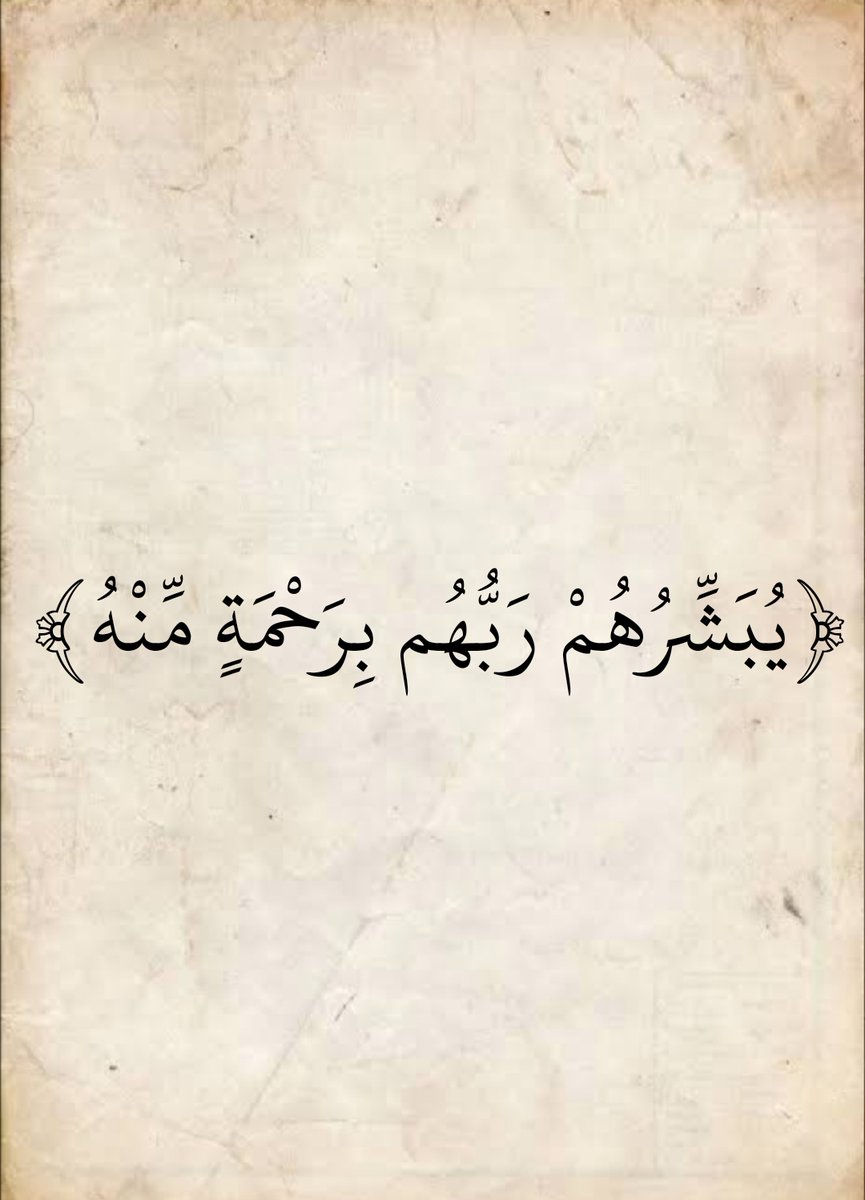 ﴿ يُبَشِّرُهُمْ رَبُّهُم بِرَحْمَةٍ مِّنْهُ ﴾